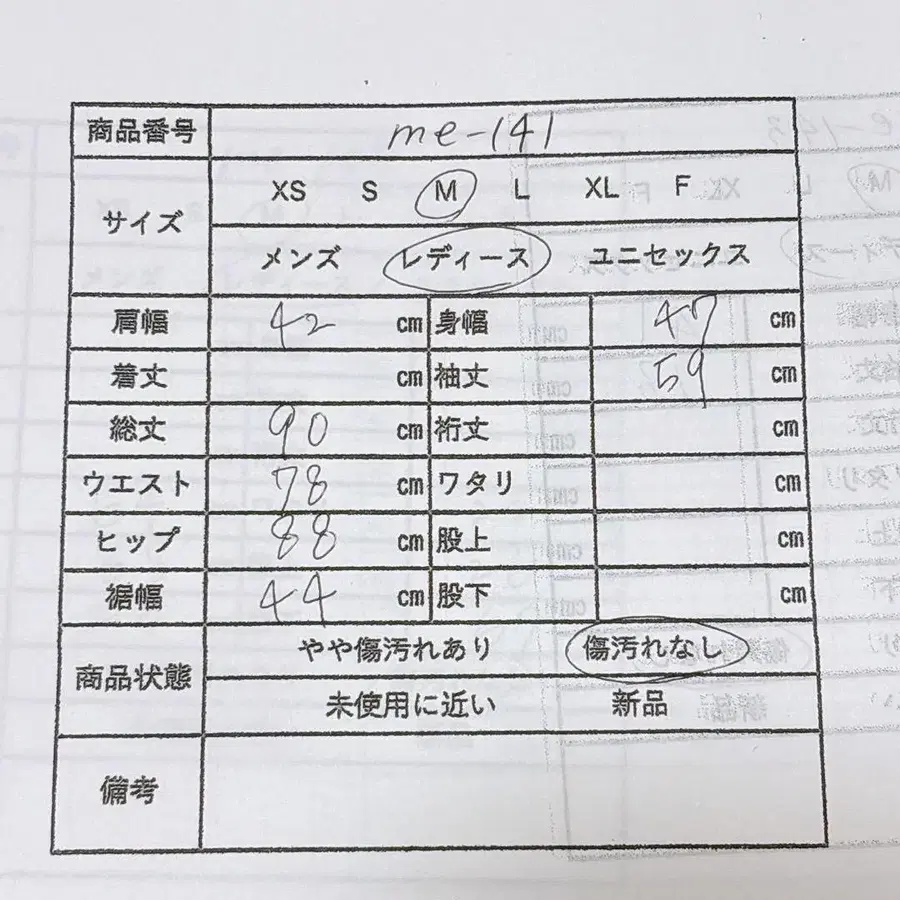 商品番号 me-141
サイズ XS S M L XL F
メンズ レディース ユニセックス
肩幅 42 cm 身幅 47 cm
着丈 cm 袖丈 59 cm
総丈 90 cm 裄丈 cm
ウエスト 78 cm ワタリ cm
ヒップ 88 cm 股上 cm
裾幅 44 cm 股下 cm
商品状態 やや傷汚れあり 傷汚れなし
未使用に近い 新品
備考